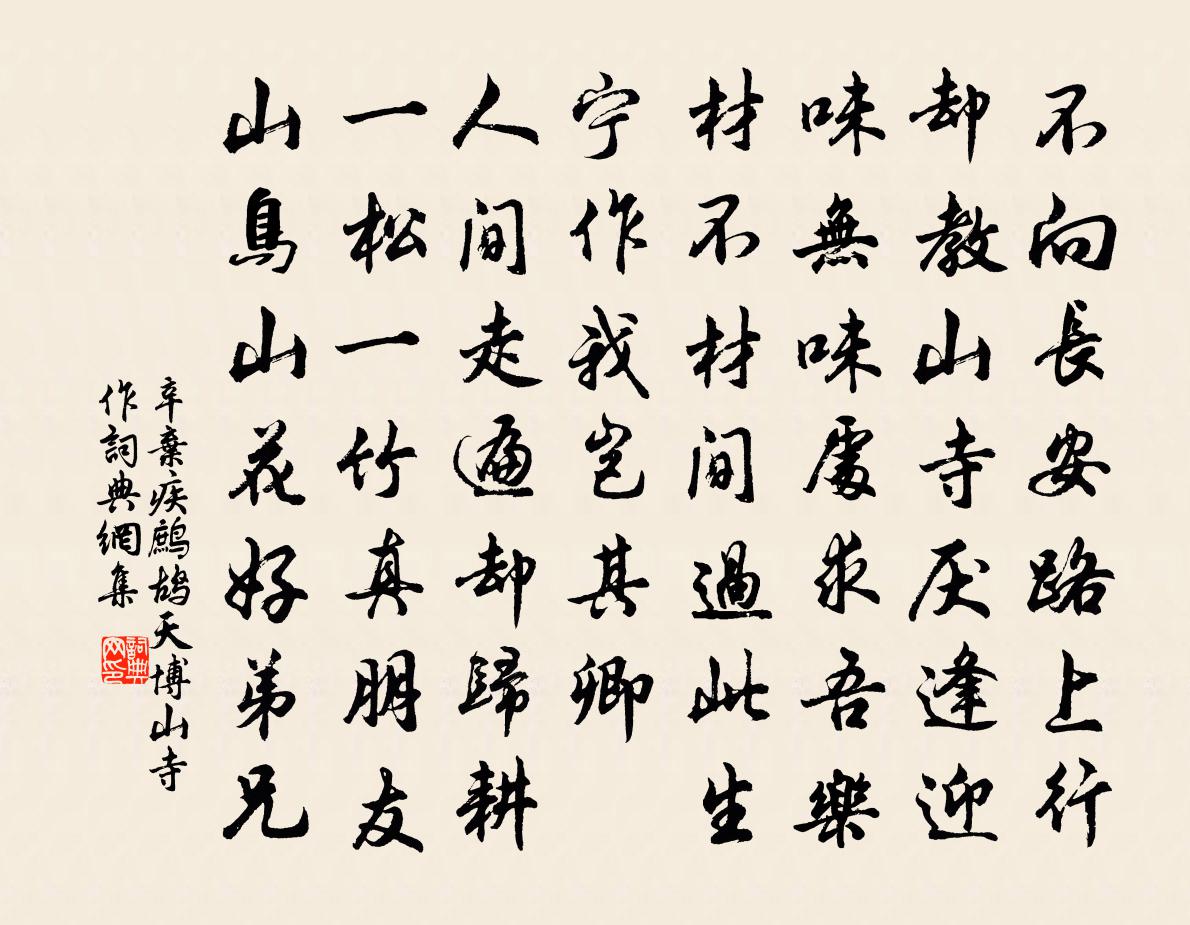 不向長安路上行
却教山寺厌逢迎
味無味處求吾樂
材不材間過此生
宁作我岂其卿
人间走遍却歸耕
一松一竹真朋友
山鳥山花好弟兄
辛棄疾鷓鴣天博山寺
作詞典網集
詞典网印